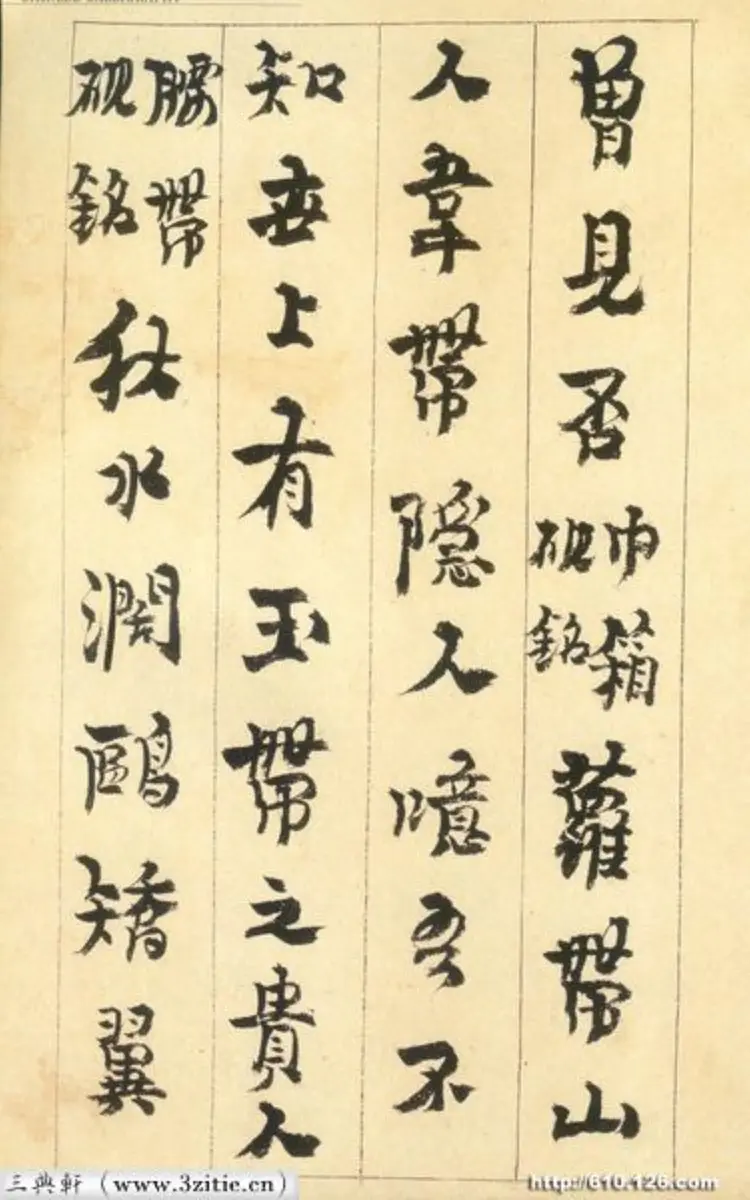 曾見否巾箱硯銘蘿帶山
人韋帶隱人噫吾不
知世上有玉帶之貴人
腰帶硯銘秋水濶鷗矯翼
三典軒（www.3zitie.cn）
http://610.126.com